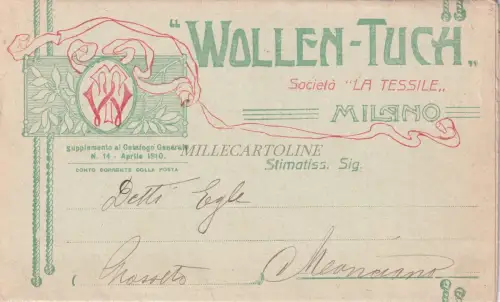 "WOLLEN-TUCH"
Società "LA TESSILE"
MILANO
Supplemento al Catalogo Generale
N. 14 - Aprile 1910.
MILLECARTOLINE
CONTO CORRENTE COLLA POSTA
Stimatiss. Sig.
Detti Egle
(Grosseto) Manciano